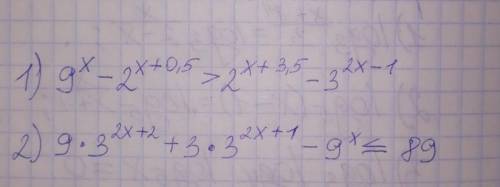 1) 9^x - 2^{x+0,5} > 2^{x+3,5} - 3^{2x-1}
2) 9·3^{2x+2} + 3·3^{2x+1} - 9^x ≤ 89